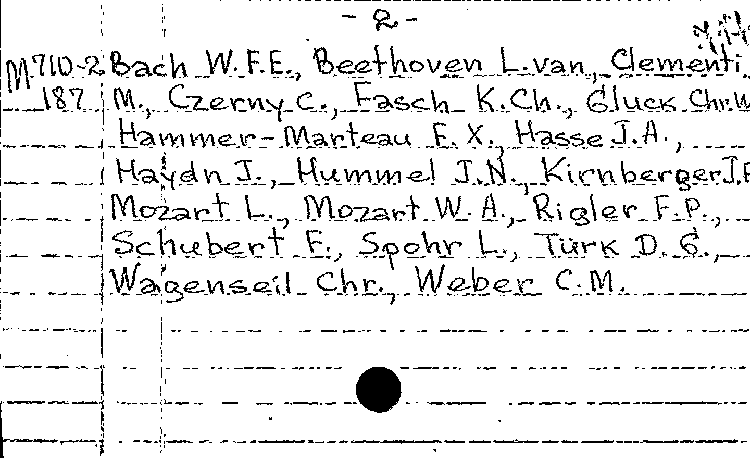 - 2 -
M710-2 Bach W.F.E., Beethoven L.van, Clementi
187 M., Czerny C., Fasch K.Ch., Gluck Chr.W
Hammer-Marteau F.X., Hasse J.A.,
Haydn J., Hummel J.N., Kirnberger J.P
Mozart L., Mozart W.A., Rigler F.P.,
Schubert F., Spohr L., Türk D.G.,
Wagenseil Chr., Weber C.M.